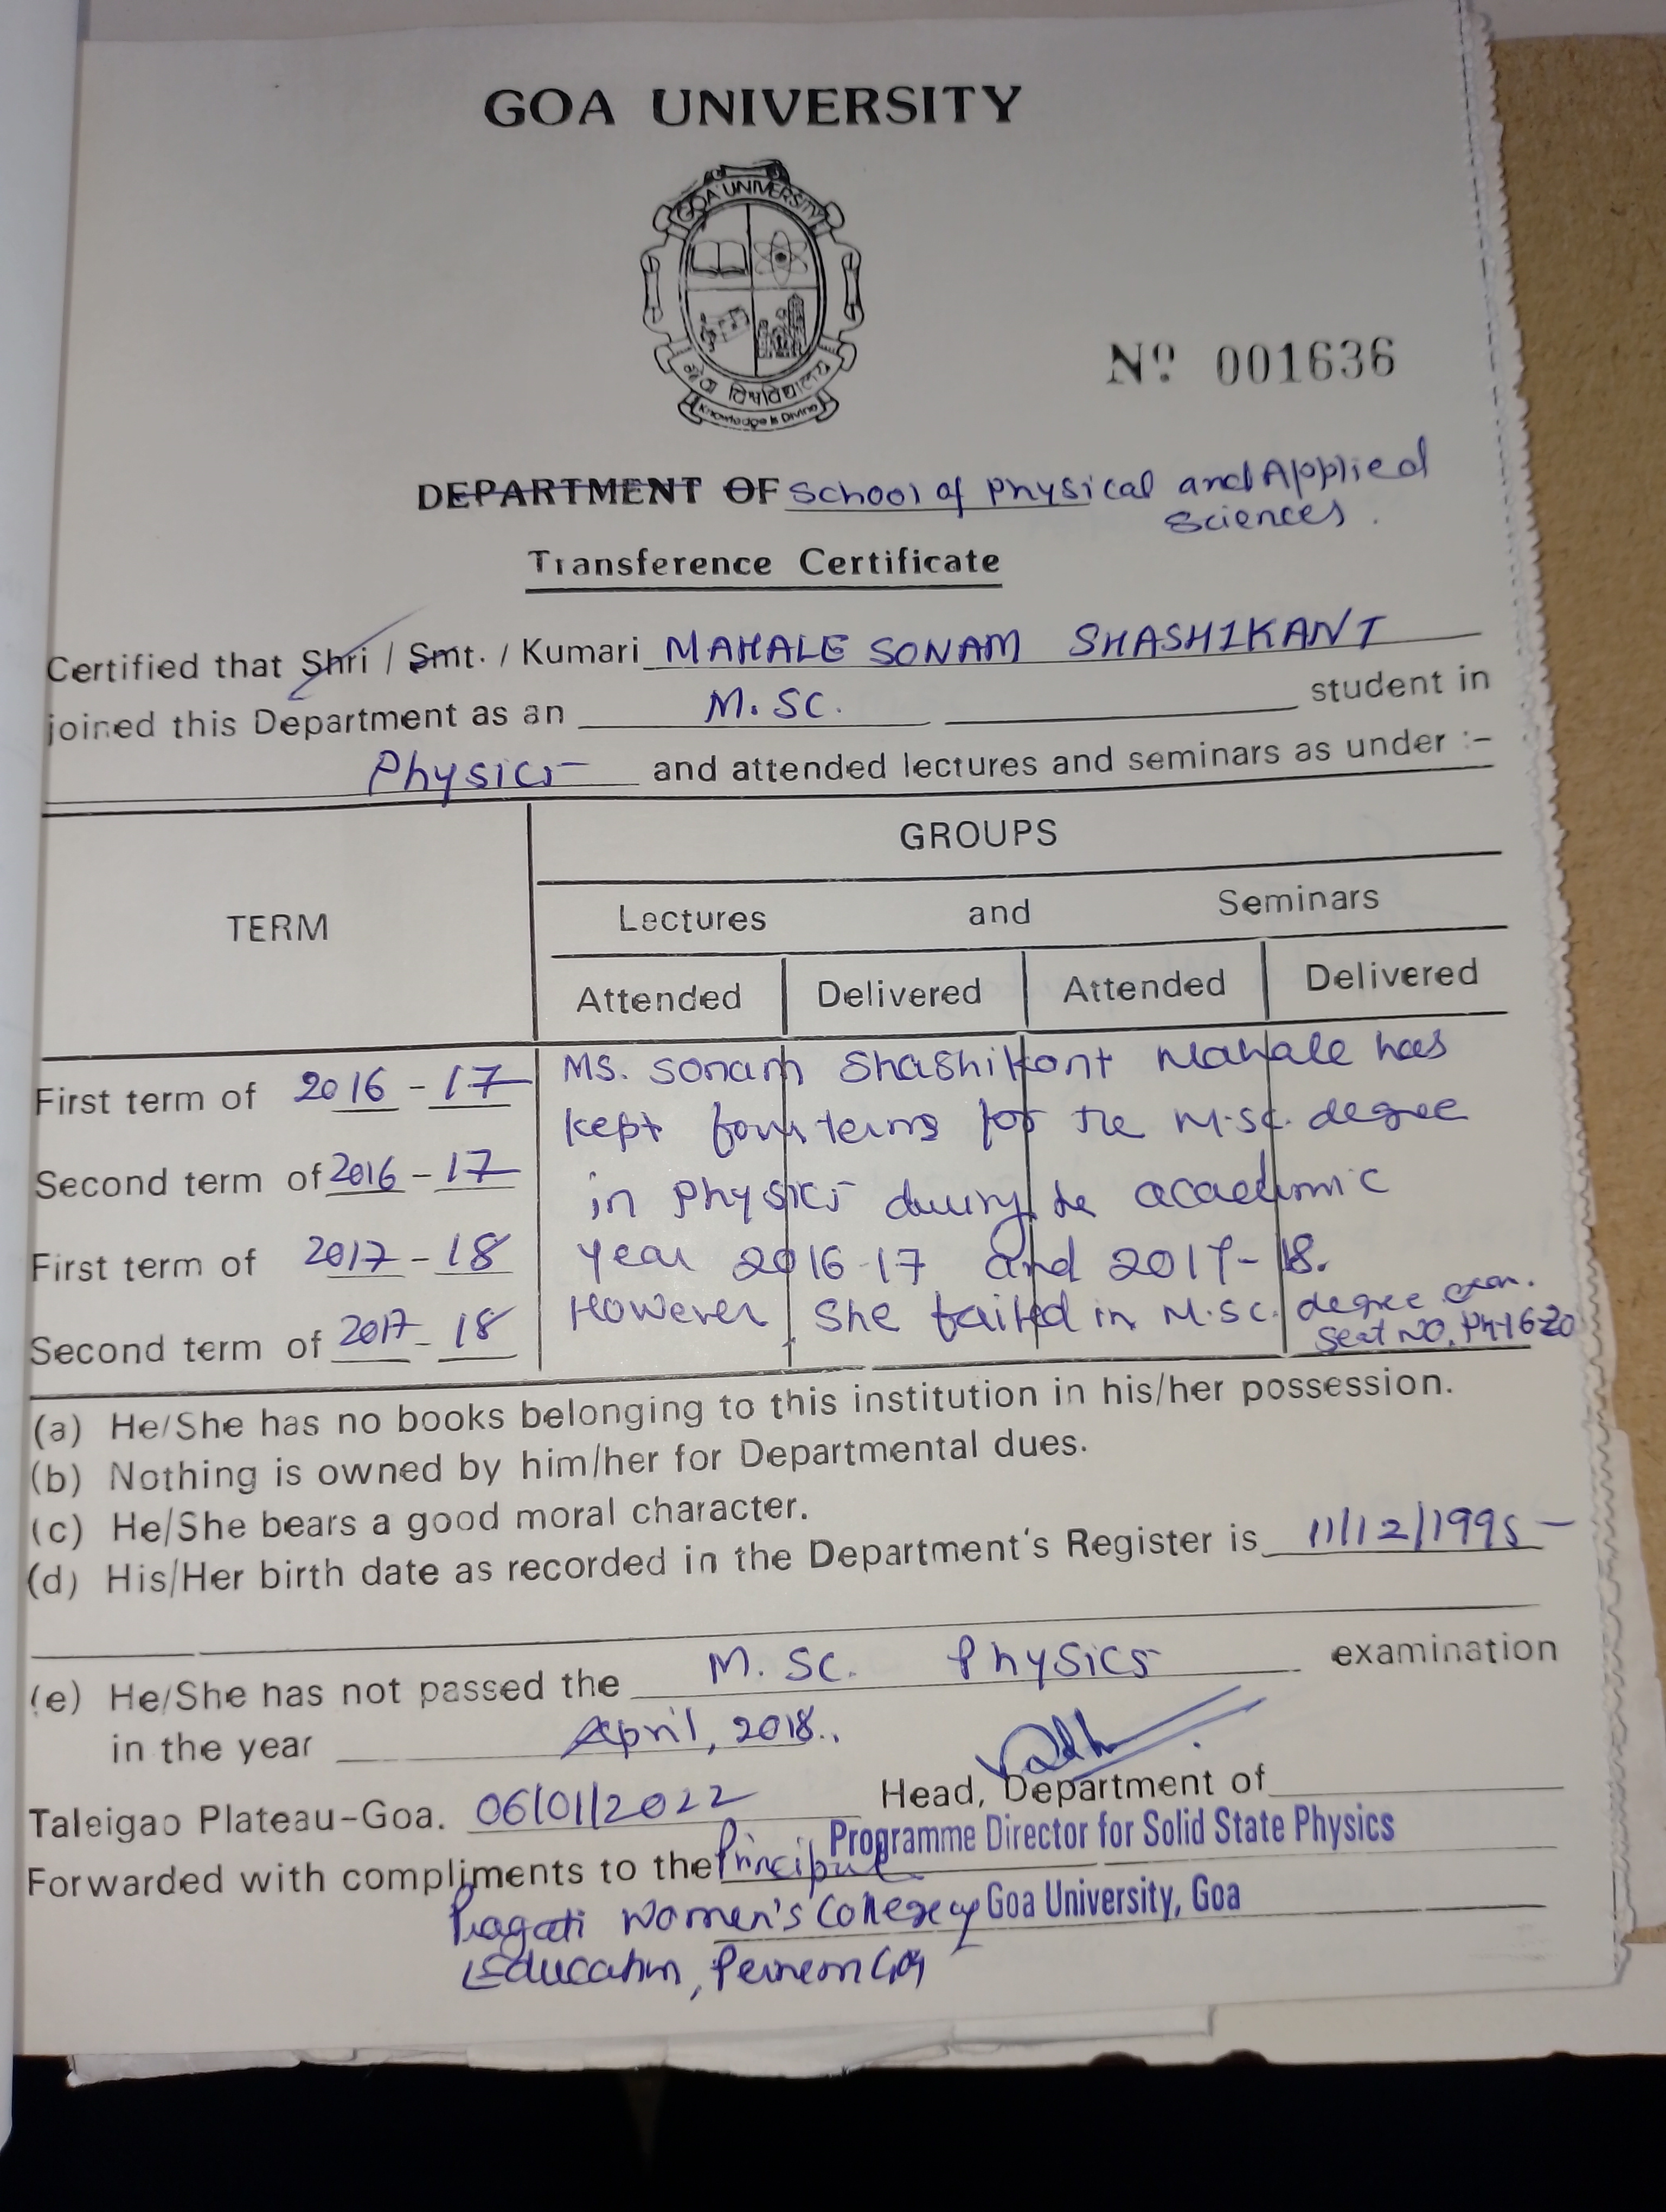 GOA UNIVERSITY
GOA UNIVERSITY
गोवा विश्वविद्यालय
Knowledge is Divine
Nº 001636
DEPARTMENT OF School of Physical and Applied
Sciences.
Transference Certificate
Certified that Shri / Smt. / Kumari MAHALE SONAM SHASHIKANT
joined this Department as an M.SC. student in
Physics and attended lectures and seminars as under :-
GROUPS
TERM
Lectures and Seminars
Attended Delivered Attended Delivered
First term of 2016-17 Ms. Sonam Shashikant Mahale has
kept four terms for the M.Sc. degree
Second term of 2016-17
in Physics during the academic
First term of 2017-18 year 2016-17 and 2017-18.
However, she failed in M.Sc. degree exam.
Second term of 2017-18 Seat NO. PH-1620
(a) He/She has no books belonging to this institution in his/her possession.
(b) Nothing is owned by him/her for Departmental dues.
(c) He/She bears a good moral character.
(d) His/Her birth date as recorded in the Department's Register is 11/12/1995
(e) He/She has not passed the M.SC. Physics examination
in the year April, 2018.
Head, Department of
Taleigao Plateau-Goa. 06/01/2022
Programme Director for Solid State Physics
Forwarded with compliments to the Principal
Goa University, Goa
Pragati Women's College of
Education, Pernem Goa